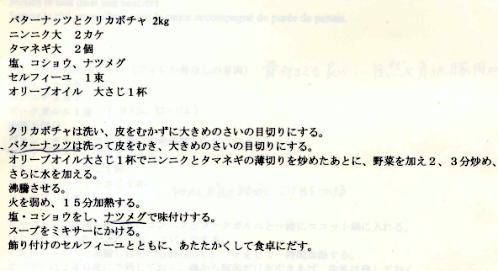 バターナッツとクリカボチャ 2kg
ニンニク大　２カケ
タマネギ大　２個
塩、コショウ、ナツメグ
セルフィーユ　１束
オリーブオイル　大さじ１杯
クリカボチャは洗い、皮をむかずに大きめのさいの目切りにする。
バターナッツは洗って皮をむき、大きめのさいの目切りにする。
オリーブオイル大さじ１杯でニンニクとタマネギの薄切りを炒めたあとに、野菜を加え２、３分炒め、
さらに水を加える。
沸騰させる。
火を弱め、１５分加熱する。
塩・コショウをし、ナツメグで味付けする。
スープをミキサーにかける。
飾り付けのセルフィーユとともに、あたたかくして食卓にだす。